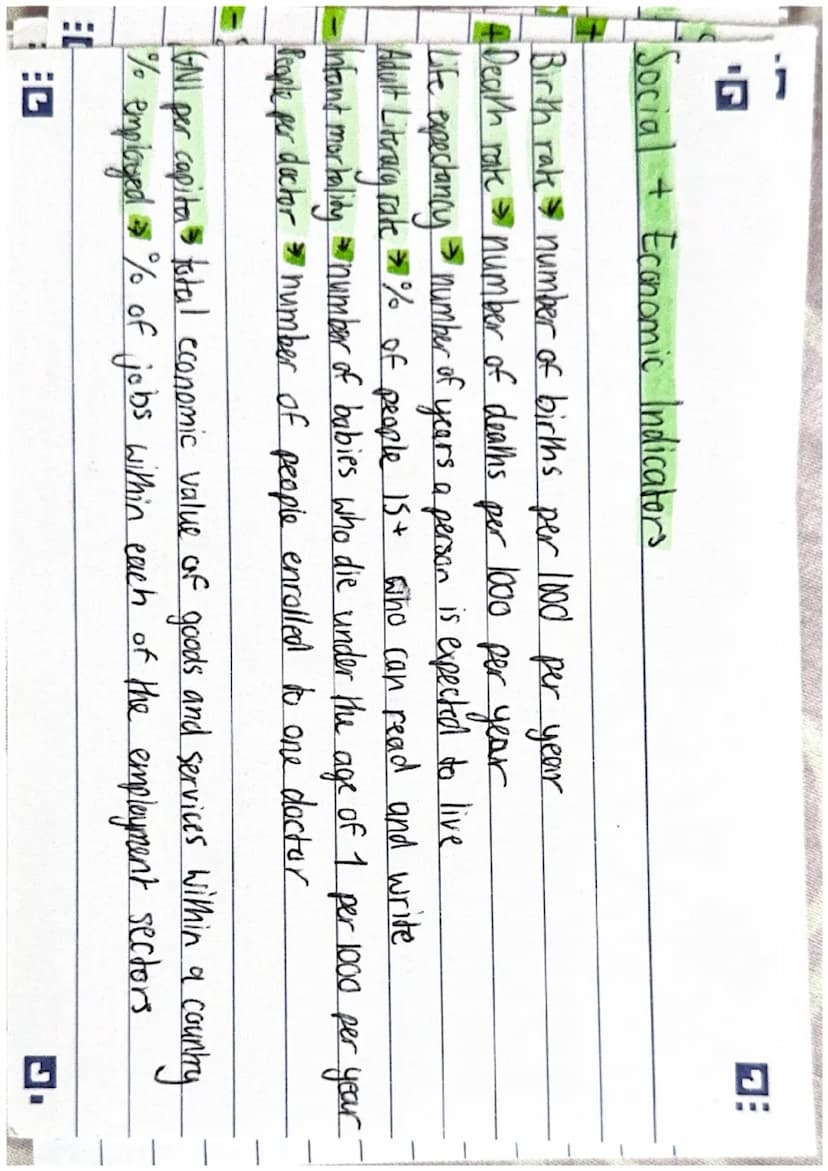 Social + Economic Indicators
Birth rate → number of births per 1000 per year
Death rate → number of deaths per 1000 per year
Life expectancy → number of years a person is expected to live
Adult Literacy rate → % of people 15+ who can read and write
Infant mortality → number of babies who die under the age of 1 per 1000 per year
People per doctor → number of people enrolled to one doctor
GNI per capita → total economic value of goods and services within a country
% employed → % of jobs within each of the employment sectors